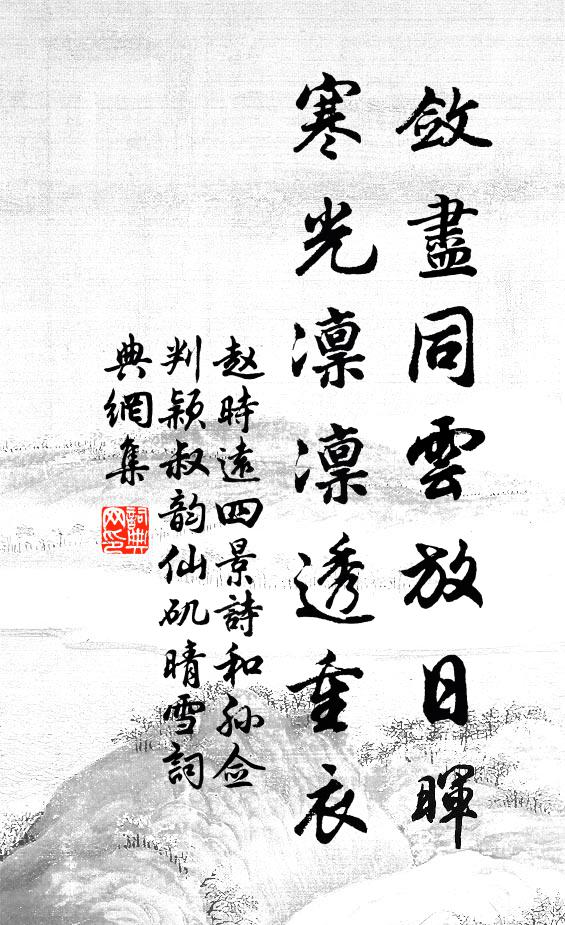 斂盡同雲放日暉
寒光凜凜透重衣
赵時遠四景詩和孙佥
判颖叔韵仙矶晴雪詞
典網集
詞典網印